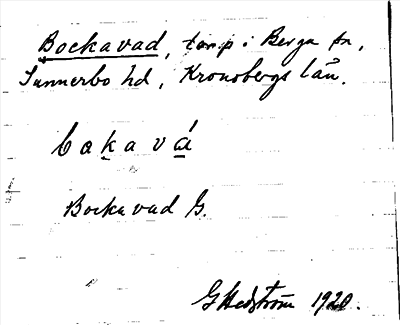 Bockavad, torp i Berga sn,
Sunnerbo hd, Kronobergs län.
bokavá
Bockavad G.
G Hedström 1920.